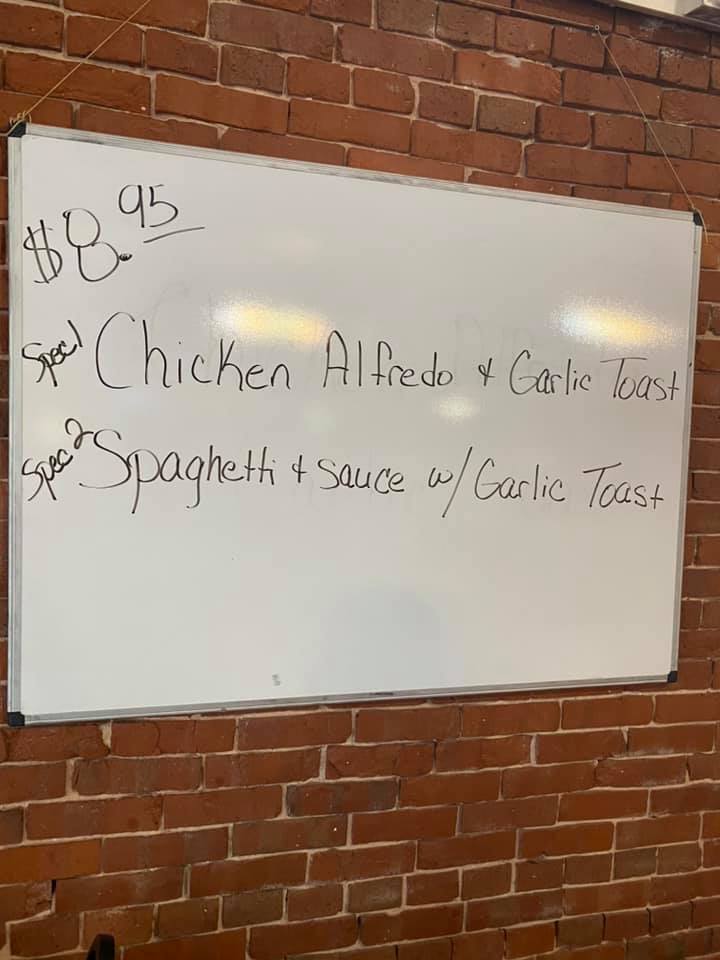 $8.95
Spec 1 Chicken Alfredo & Garlic Toast
Spec 2 Spaghetti + Sauce w/ Garlic Toast